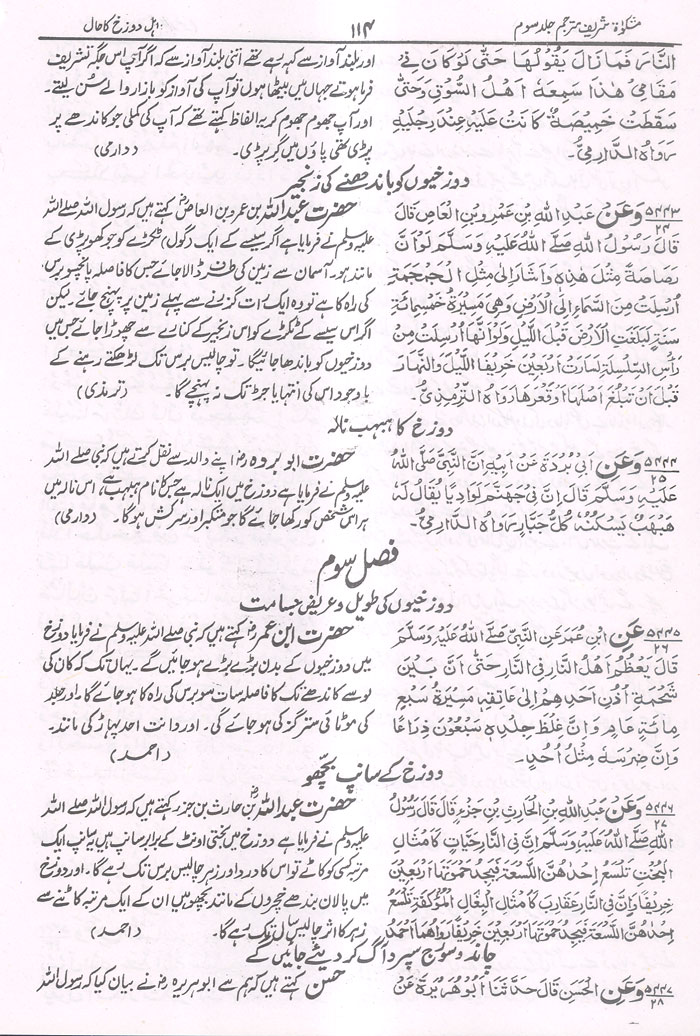 مشکوٰۃ شریف مترجم جلد سوم
۱۱۴
اہل دوزخ کا حال
النَّارَ فَمَا زَالَ يَقُولُهَا حَتّٰى لَوْ كَانَ فِيْ
مَقَامِيْ هٰذَا سَمِعَهٗ اَهْلُ السُّوْقِ وَحَتّٰى
سَقَطَتْ خَمِيْصَةٌ كَانَتْ عَلَيْهِ عِنْدَ رِجْلَيْهِ
رَوَاهُ الدَّارِمِيُّ۔
اور بلند آواز سے کہہ رہے تھے اتنی بلند آواز سے کہ اگر آپ اس جگہ تشریف
فرما ہوتے جہاں میں بیٹھا ہوں تو آپ کی آواز کو بازار والے سُن لیتے۔
اور آپ جھوم جھوم کر یہ الفاظ کہتے تھے کہ آپ کی کملی جو کاندھے پر
پڑی تھی پاؤں میں گر پڑی۔ (دارمی)
دوزخیوں کو باندھنے کی زنجیر
۵۴۴۳ وَعَنْ عَبْدِ اللهِ بْنِ عَمْرِو بْنِ الْعَاصِ قَالَ
۲۴
قَالَ رَسُوْلُ اللهِ صَلَّى اللهُ عَلَيْهِ وَسَلَّمَ لَوْ اَنَّ
رَصَاصَةً مِثْلَ هٰذِهٖ وَاَشَارَ اِلٰى مِثْلِ الْجُمْجُمَةِ
اُرْسِلَتْ مِنَ السَّمَاءِ اِلَى الْاَرْضِ وَهِيَ مَسِيْرَةُ خَمْسِمِائَةِ
سَنَةٍ لَبَلَغَتِ الْاَرْضَ قَبْلَ اللَّيْلِ وَلَوْ اَنَّهَا اُرْسِلَتْ مِنْ
رَأْسِ السِّلْسِلَةِ لَسَارَتْ اَرْبَعِيْنَ خَرِيْفًا اللَّيْلَ وَالنَّهَارَ
قَبْلَ اَنْ تَبْلُغَ اَصْلَهَا اَوْ قَعْرَهَا رَوَاهُ التِّرْمِذِيُّ۔
حضرت عبداللہ بن عمرو بن العاصؓ کہتے ہیں کہ رسول اللہ صلے اللہ
علیہ وسلم نے فرمایا ہے اگر سیسے کے ایک (گول) ٹکڑے کو جو کھوپڑی کے
مانند ہو۔ آسمان سے زمین کی طرف ڈالا جائے جس کا فاصلہ پانچسو برس
کی راہ کا ہے تو وہ ایک رات گزرنے سے پہلے زمین پر پہنچ جائے۔ لیکن
اگر اس سیسے کے ٹکڑے کو اس زنجیر کے کنارے سے چھوڑا جائے جس میں
دوزخیوں کو باندھا جائیگا۔ تو چالیس برس تک لڑھکتے رہنے کے
باوجود اس کی انتہا یا جڑ تک نہ پہنچے گا۔ (ترمذی)
دوزخ کا ہبہب نالہ
۵۴۴۴ وَعَنْ اَبِيْ بُرْدَةَ عَنْ اَبِيْهِ اَنَّ النَّبِيَّ صَلَّى اللهُ
۲۵
عَلَيْهِ وَسَلَّمَ قَالَ اِنَّ فِيْ جَهَنَّمَ لَوَادِيًا يُقَالُ لَهٗ
هَبْهَبُ يَسْكُنُهٗ كُلُّ جَبَّارٍ رَوَاهُ الدَّارِمِيُّ۔
حضرت ابوبردہ رض اپنے والد سے نقل کرتے ہیں کہ نبی صلے اللہ
علیہ وسلم نے فرمایا ہے دوزخ میں ایک نالہ ہے جس کا نام ہبہب ہے، اس نالہ میں
ہر اس شخص کو رکھا جائے گا جو متکبر اور سرکش ہوگا۔ (دارمی)
فصل سوم
دوزخیوں کی طویل و عریض جسامت
۵۴۴۵ عَنِ ابْنِ عُمَرَ عَنِ النَّبِيِّ صَلَّى اللهُ عَلَيْهِ وَسَلَّمَ
۲۶
قَالَ يَعْظُمُ اَهْلُ النَّارِ فِي النَّارِ حَتّٰى اَنَّ بَيْنَ
شَحْمَةِ اُذُنِ اَحَدِهِمْ اِلٰى عَاتِقِهٖ مَسِيْرَةَ سَبْعِ
مِائَةِ عَامٍ وَاِنَّ غِلَظَ جِلْدِهٖ سَبْعُوْنَ ذِرَاعًا
وَاِنَّ ضِرْسَهٗ مِثْلُ اُحُدٍ۔
حضرت ابن عمرؓ کہتے ہیں کہ نبی صلے اللہ علیہ وسلم نے فرمایا دوزخ
میں دوزخیوں کے بدن بڑے بڑے ہو جائیں گے۔ یہاں تک کہ کان کی
لو سے کاندھے تک کا فاصلہ سات سو برس کی راہ کا ہو جائے گا۔ اور جلد
کی موٹائی ستر گز کی ہو جائے گی۔ اور دانت احد پہاڑ کی مانند۔
(احمد)
دوزخ کے سانپ بچھو
۵۴۴۶ وَعَنْ عَبْدِ اللهِ بْنِ الْحَارِثِ بْنِ جَزْءٍ قَالَ قَالَ رَسُوْلُ
۲۷
اللهِ صَلَّى اللهُ عَلَيْهِ وَسَلَّمَ اِنَّ فِي النَّارِ حَيَّاتٍ كَاَمْثَالِ
الْبُخْتِ تَلْسَعُ اِحْدٰهُنَّ اللَّسْعَةَ فَيَجِدُ حَمْوَتَهَا اَرْبَعِيْنَ
خَرِيْفًا وَاِنَّ فِي النَّارِ عَقَارِبَ كَاَمْثَالِ الْبِغَالِ الْمُؤْكَفَةِ تَلْسَعُ
اِحْدٰهُنَّ اللَّسْعَةَ فَيَجِدُ حَمْوَتَهَا اَرْبَعِيْنَ خَرِيْفًا رَوَاهُمَا اَحْمَدُ
حضرت عبداللہؓ بن حارث بن جزء کہتے ہیں کہ رسول اللہ صلے اللہ
علیہ وسلم نے فرمایا ہے دوزخ میں بختی اونٹ کے برابر سانپ ہیں یہ سانپ ایک
مرتبہ کسی کو کاٹے تو اس کا درد اور زہر چالیس برس تک رہے گا۔ اور دوزخ
میں پالان بندھے خچروں کے مانند بچھو ہیں ان کے ایک مرتبہ کاٹنے سے
زہر کا اثر چالیس سال تک رہے گا۔ (احمد)
چاند و سورج سپرد آگ کر دیئے جائیں گے
۵۴۴۷ وَعَنِ الْحَسَنِ قَالَ حَدَّثَنَا اَبُوْ هُرَيْرَةَ عَنْ
۲۸
حسن کہتے ہیں کہ ہم سے ابو ہریرہ رض نے بیان کیا کہ رسول اللہ